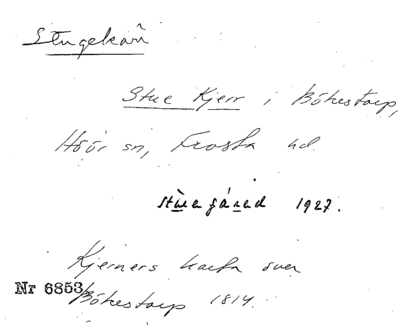 Stugekärr
Stue Kjerr i Bökestorp,
Höör sn, Frosta hd.
1927.
Kjerners karta över
Nr 6853
Bökestorp 1814.